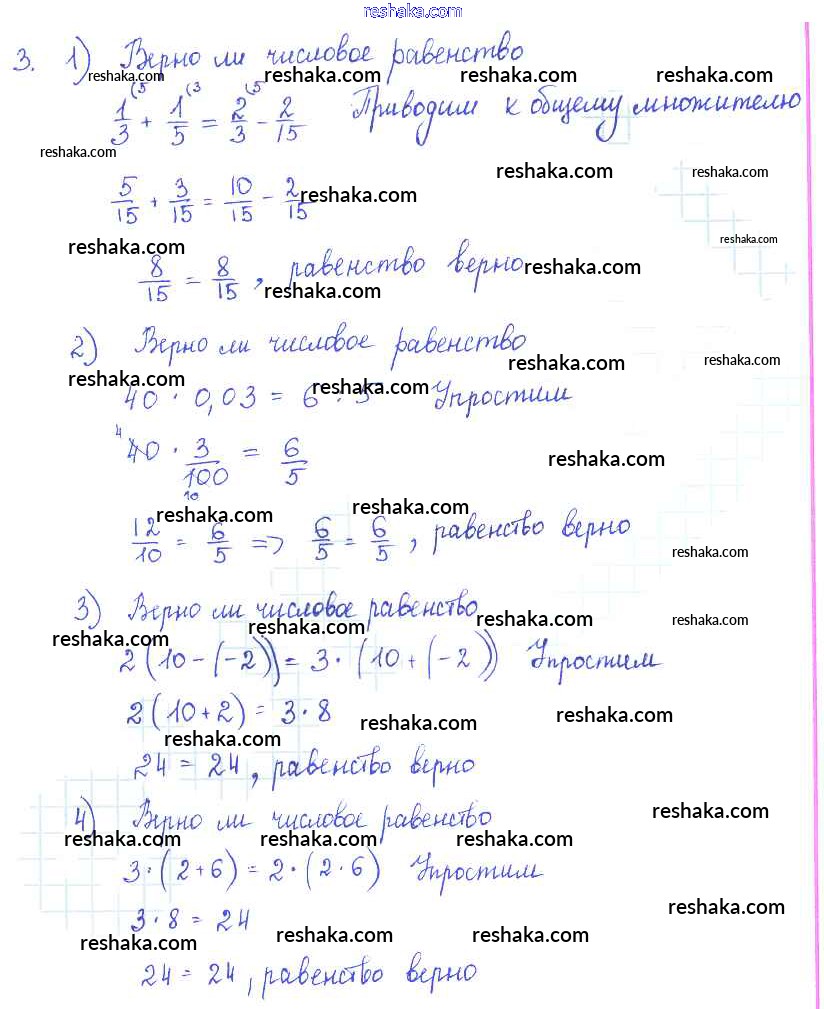 reshaka.com
3. 1) Верно ли числовое равенство
reshaka.com reshaka.com reshaka.com reshaka.com
1/3 (5 + 1/5 (3 = 2/3 (5 - 2/15 Приводим к общему множителю
reshaka.com
reshaka.com reshaka.com
5/15 + 3/15 = 10/15 - 2/15 reshaka.com
reshaka.com reshaka.com
8/15 = 8/15, равенство верно reshaka.com
reshaka.com
2) Верно ли числовое равенство
reshaka.com reshaka.com
reshaka.com reshaka.com
40 · 0,03 = 6 : 5 Упростим
4 40 · 3/100 10 = 6/5 reshaka.com
reshaka.com reshaka.com
12/10 = 6/5 => 6/5 = 6/5, равенство верно
reshaka.com
3) Верно ли числовое равенство
reshaka.com reshaka.com reshaka.com reshaka.com
2(10-(-2)) = 3·(10+(-2)) Упростим
2(10+2) = 3·8 reshaka.com reshaka.com
reshaka.com
24 = 24, равенство верно
4) Верно ли числовое равенство reshaka.com
reshaka.com reshaka.com reshaka.com
3·(2+6) = 2·(2·6) Упростим
3·8 = 24 reshaka.com
reshaka.com reshaka.com reshaka.com
24 = 24, равенство верно